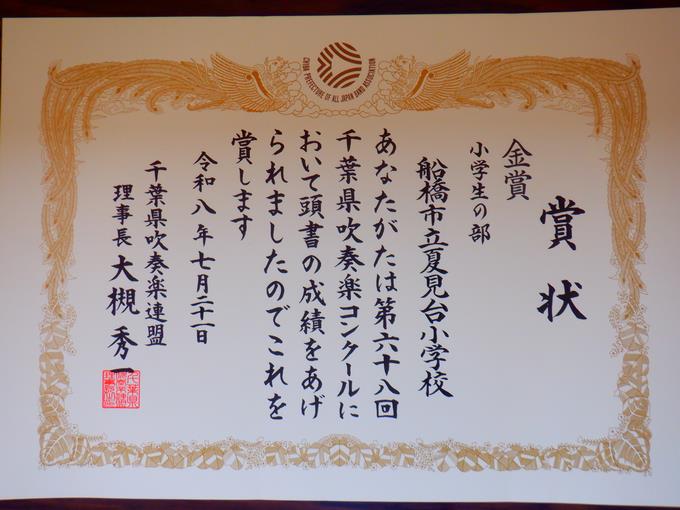 CHIBA PREFECTURE OF ALL JAPAN BAND ASSOCIATION
賞状
金賞
小学生の部
船橋市立夏見台小学校
あなたがたは第六十八回
千葉県吹奏楽コンクールに
おいて頭書の成績をあげ
られましたのでこれを
賞します
令和八年七月二十一日
千葉県吹奏楽連盟
理事長 大槻秀一